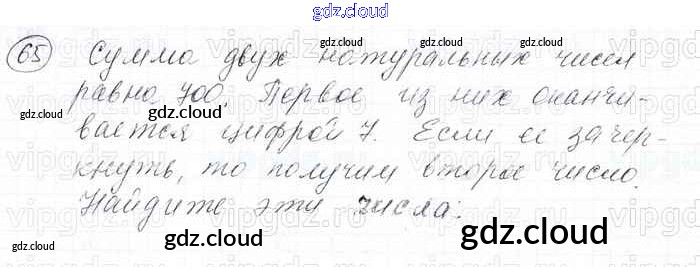 gdz.cloud
65 Сумма двух натуральных чисел
равна 700. Первое из них оканчи-
вается цифрой 7. Если ее зачер-
кнуть, то получим второе число.
Найдите эти числа.
gdz.cloud
gdz.cloud
gdz.cloud
gdz.cloud
gdz.cloud
gdz.cloud
gdz.cloud
gdz.cloud
gdz.cloud